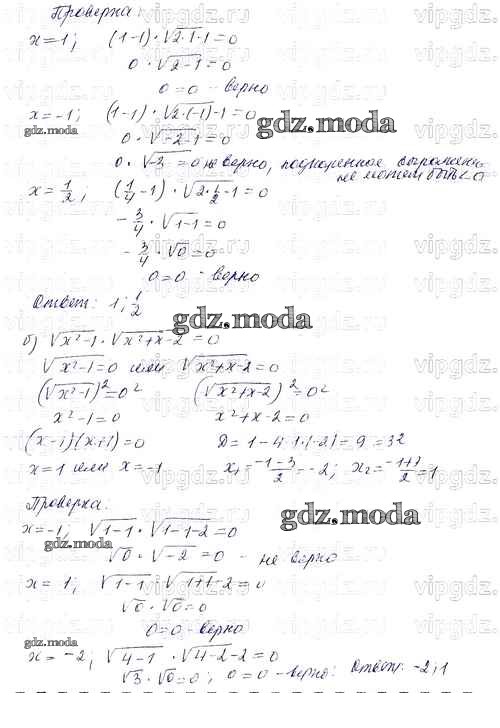 Проверка:
x=1; (1-1)·√2·1-1=0
0·√2-1=0
0=0 - верно
x=-1; (1-1)·√2·(-1)-1=0
gdz.moda
0·√-2-1=0
gdz.moda
0·√-3=0 не верно, подкоренное выражение
не может быть <0
x=1/2; (1/4-1)·√2·1/2-1=0
-3/4·√1-1=0
-3/4·√0=0
0=0 - верно
Ответ: 1; 1/2
gdz.moda
б) √x²-1·√x²+x-2=0
√x²-1=0 или √x²+x-2=0
(√x²-1)²=0² (√x²+x-2)²=0²
x²-1=0 x²+x-2=0
(x-1)(x+1)=0 D=1-4·1·(-2)=9=3²
x=1 или x=-1 x₁=-1-3/2=-2; x₂=-1+3/2=1
Проверка:
gdz.moda
x=-1; √1-1·√1-1-2=0
gdz.moda
√0·√-2=0 - не верно
x=1; √1-1·√1+1-2=0
√0·√0=0
0=0 - верно
gdz.moda
x=-2; √4-1·√4-2-2=0
√3·√0=0; 0=0 - верно. Ответ: -2; 1